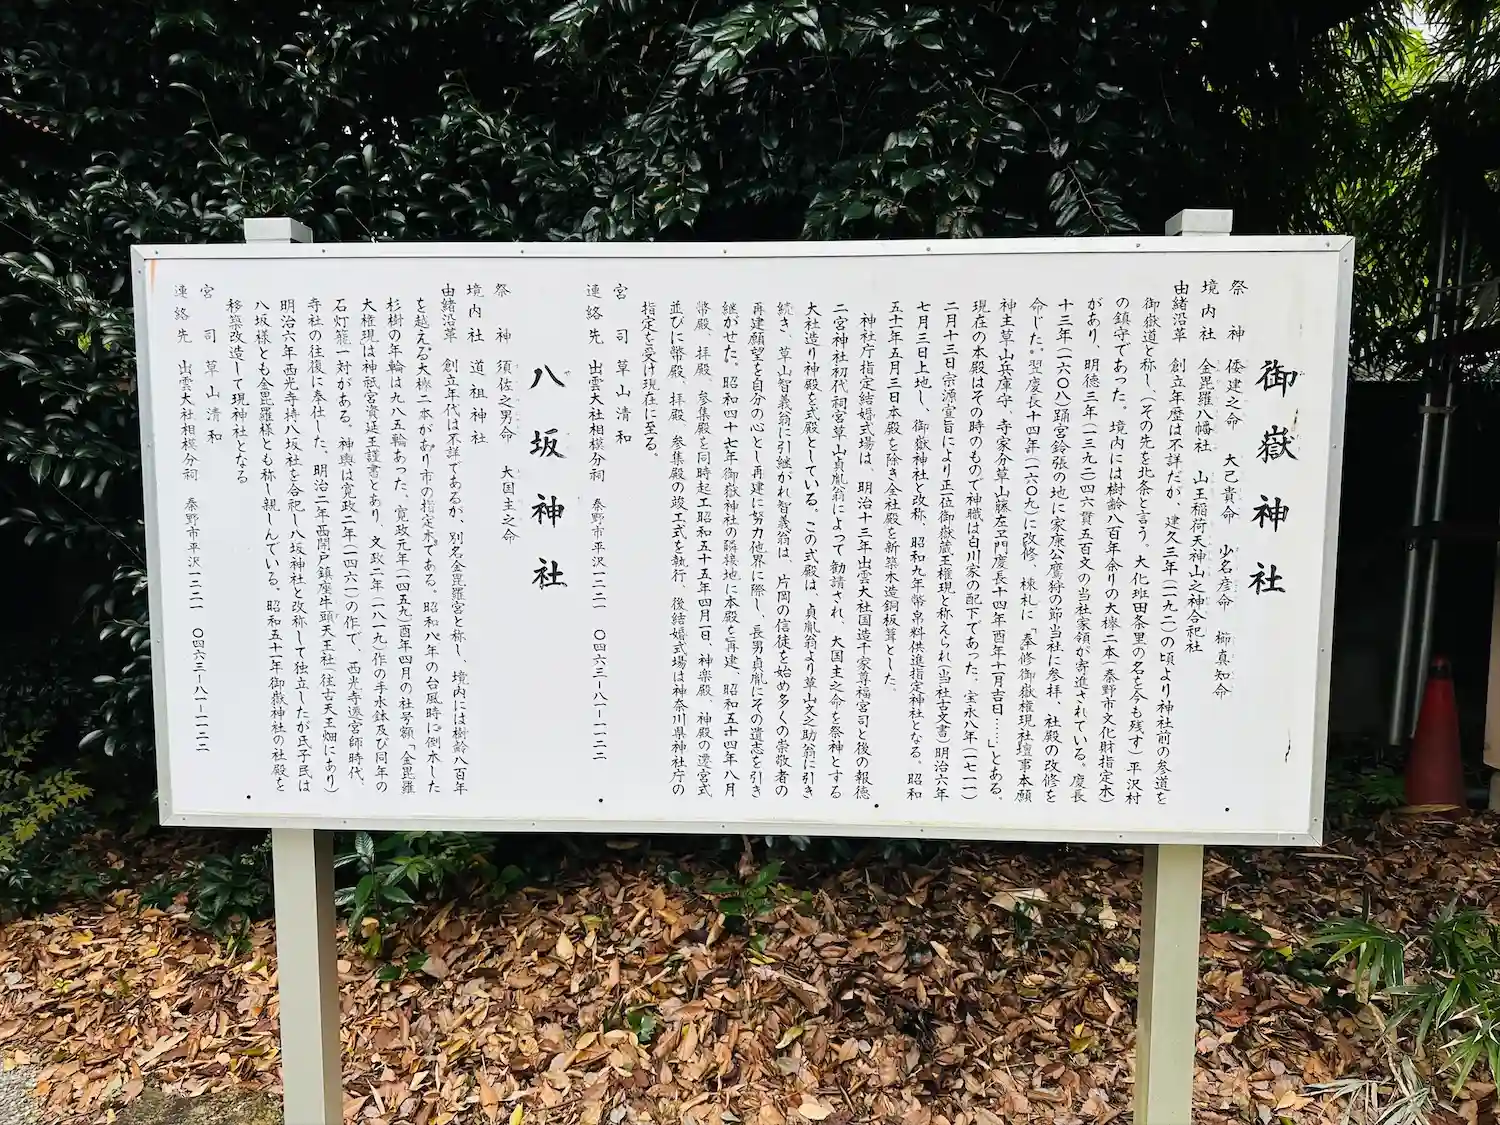 御嶽神社
祭神 倭建之命 大己貴命 少名彦命 櫛真知命
境内社 金毘羅八幡社 山王稲荷天神山之神合祀社
由緒沿革 創立年歴は不詳だが、建久三年(一一九二)の頃より神社前の参道を
御嶽道と称し(その先を北条と言う。大化班田条里の名を今も残す)平沢村
の鎮守であった。境内には樹齢八百年余りの大欅二本(秦野市文化財指定木)
があり、明徳三年(一三九二)四六貫五百文の当社家領が寄進されている。慶長
十三年(一六〇八)頭宮鈴張の地に家康公鷹狩の節当社に参拝、社殿の改修を
命した。翌慶長十四年(一六〇九)に改修、棟札に「奉修御嶽権現社壇事本願
神主草山兵庫守、寺家分草山藤左ヱ門慶長十四年酉年十一月吉日……」とある。
現在の本殿はその時のもので神職は白川家の配下であった、宝永八年(一七一一)
二月十三日宗源宣旨により正一位御嶽蔵王権現と称えられ(当社古文書)明治六年
七月三日上地し、御嶽神社と改称、昭和九年幣帛料供進指定神社となる。昭和
五十一年五月三日本殿を除き全社殿を新築木造銅板葺とした、
神社庁指定結婚式場は、明治十三年出雲大社国造千家尊福宮司と後の報徳
二宮神社初代祠官草山貞胤翁によって勧請され、大国主之命を祭神とする
大社造り神殿を式殿としている。この式殿は、貞胤翁より草山文之助翁に引き
続き、草山智義翁に引継がれ智義翁は、片岡の信徒を始め多くの崇敬者の
再建願望を自分の心とし再建に努力他界に際し、長男貞胤にその遺志を引き
継がせた。昭和四十七年御嶽神社の隣接地に本殿を再建、昭和五十四年八月
幣殿、拝殿、参集殿を同時起工昭和五十五年四月一日、神楽殿、神殿の遷宮式
並びに幣殿、拝殿、参集殿の竣工式を執行、後結婚式場は神奈川県神社庁の
指定を受け現在に至る。
宮司 草山清和
連絡先 出雲大社相模分祠 秦野市平沢一二二一 〇四六三ー八一ー一一二二
八坂神社
祭神 須佐之男命 大国主之命
境内社 道祖神社
由緒沿革 創立年代は不詳であるが、別名金毘羅宮と称し、境内には樹齢八百年
を越える大欅二本があり市の指定木である。昭和八年の台風時に倒木した
杉樹の年輪は九八五輪あった、寛政元年(一四五九)酉年四月の社号額「金毘羅
大権現は神祇宮資延王謹書とあり、文政二年(一八一九)作の手水鉢及び同年の
石灯籠一対がある。神輿は寛政二年(一四六一)の作で、西光寺遷宮師時代、
寺社の往復に奉仕した、明治二年西開戸鎮座牛頭天王社(往古天王畑にあり)
明治六年西光寺持八坂社を合祀し八坂神社と改称して独立したが氏子民は
八坂様とも金毘羅様とも称し親しんでいる。昭和五十一年御嶽神社の社殿を
移築改造して現神社となる
宮司 草山清和
連絡先 出雲大社相模分祠 秦野市平沢一二二一 〇四六三ー八一ー一一二二